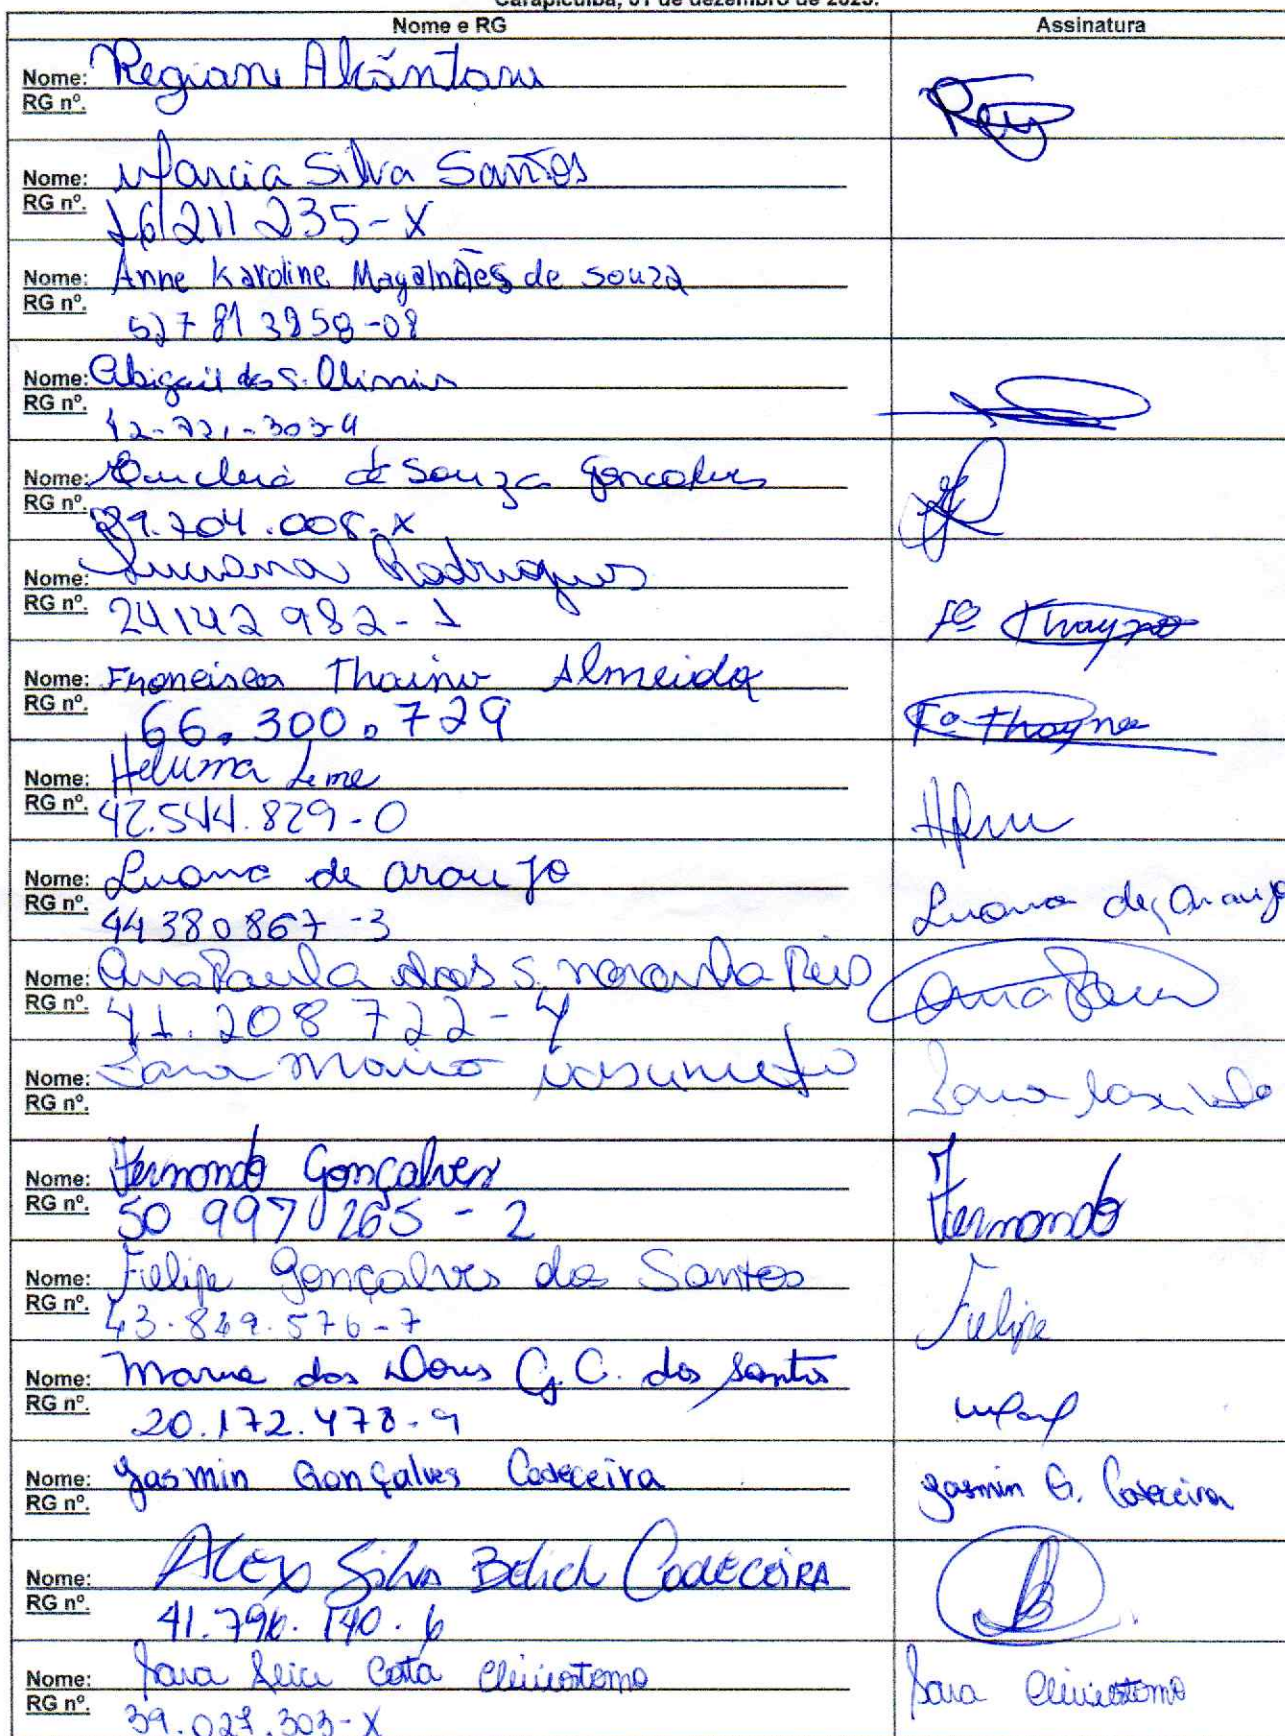 Carapicuíba, 01 de dezembro de 2023.
Nome e RG Assinatura
Nome: Regiane Alcântara
RG nº.
Nome: Marcia Silva Santos
RG nº. 16211235-X
Nome: Anne Karoline Magalhães de Souza
RG nº. 527813958-08
Nome: Abigail dos S.
RG nº.
Nome: de Souza Goncalves
RG nº. .704.008-X
Nome: Luciana Rodrigues
RG nº. 24142982-1 Fº Thayna
Nome: Francisca Thaina Almeida
RG nº. 66.300.729 Fº Thayna
Nome: Heluma Leme
RG nº. 42.544.829-0
Nome: Luana de Araujo
RG nº. 44380867-3 Luana de Araujo
Nome: Ana Paula dos S. noronha Reis
RG nº. 41.208722-4 Ana Paula
Nome: Maria
RG nº.
Nome: Fernando Gonçalves
RG nº. 50997265-2 Fernando
Nome: Fielipe Gonçalves dos Santos
RG nº. 43.849.576-7 Fielipe
Nome: Maria das Dores G. C. dos Santos
RG nº. 20.172.478-9
Nome: Yasmin Gonçalves Codeceira
RG nº. Yasmin G. Codeceira
Nome: Alex Silva Belich Codeceira
RG nº. 41.796.140.6
Nome: Sara Costa
RG nº. 39.027.303-X Sara